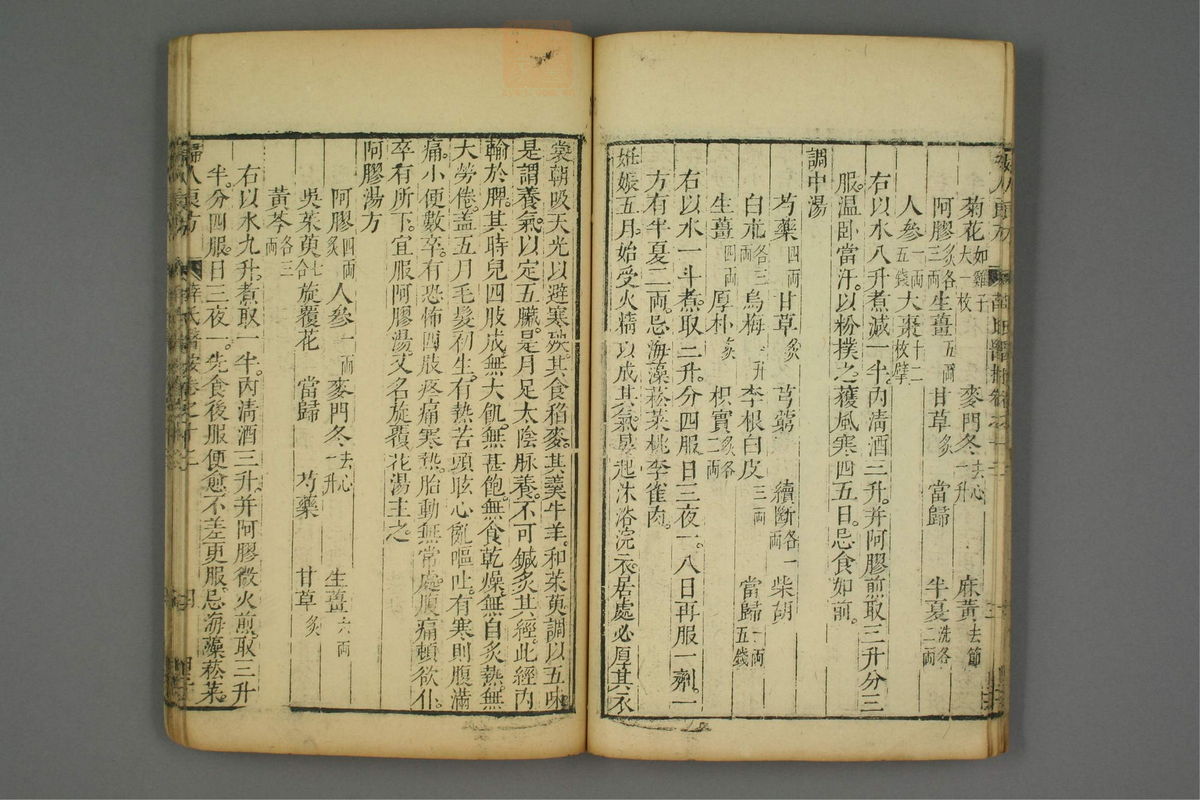 菊花如雞子大一枚 麥門冬去心一升 麻黃去節
阿膠炙各三兩 生薑五兩 甘草炙 當歸 半夏洗各二兩
人參一兩五錢 大棗十二枚擘
右以水八升煮減一半。內清酒三升。并阿膠煎取三升分三
服。溫卧當汗。以粉撲之。護風寒四五日。忌食如前。
調中湯
芍藥四兩 甘草炙 芎藭 續斷各一兩 柴胡
白朮各三兩 烏梅一升 李根白皮三兩 當歸一兩五錢
生薑四兩 厚朴炙 枳實炙各二兩
右以水一斗煮。取二升。分四服日三夜一。八日再服一劑。一
方有半夏二兩。忌海藻菘菜桃李雀肉。
妊娠五月。始受火精以成其氣。晏起沐浴浣衣。居處必厚其衣
裳朝吸天光以避寒殃。其食稻麥其羹牛羊。和茱萸調以五味
是謂養氣。以定五臟。是月足太陰脉養。不可鍼炙其經。此經內
輸於脾。其時兒四肢成無大飢。無甚飽。無食乾燥無自炙熱無
大勞倦。蓋五月毛髮初生。有熱苦頭眩心亂嘔吐。有寒則腹滿
痛。小便數卒。有恐怖四肢疼痛寒熱。胎動無常處腹痛頓欲仆。
卒有所下。宜服阿膠湯又名旋覆花湯主之。
阿膠湯方
阿膠四兩炙 人參一兩 麥門冬去心一升 生薑六兩
吳茱萸七合 旋覆花 當歸 芍藥 甘草炙
黃芩各二兩
右以水九升。煮取一半。內清酒三升。并阿膠微火煎取三升
半。分四服。日三夜一。先食後服便愈不差更服。忌海藻菘菜。
婦人良方